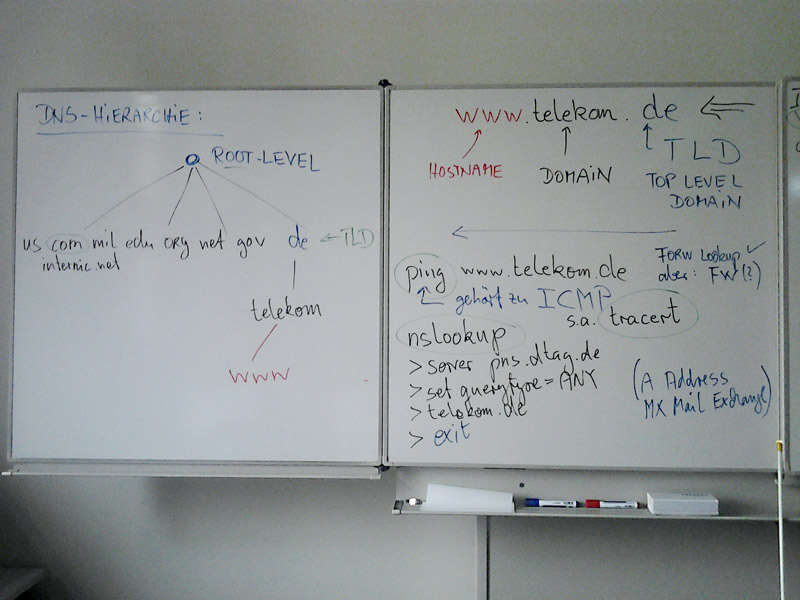 DNS-HIERARCHIE:
ROOT-LEVEL
us com mil edu org net gov de ← TLD
internic.net
telekom
www
www.telekom.de
HOSTNAME
DOMAIN
TLD
TOP LEVEL
DOMAIN
ping www.telekom.de
FORW Lookup ✓
aber: FW(?)
gehört zu ICMP
s.a. tracert
nslookup
> server pns.dtag.de
> set querytype=ANY
> telekom.de
> exit
(A Address
MX Mail Exchange)